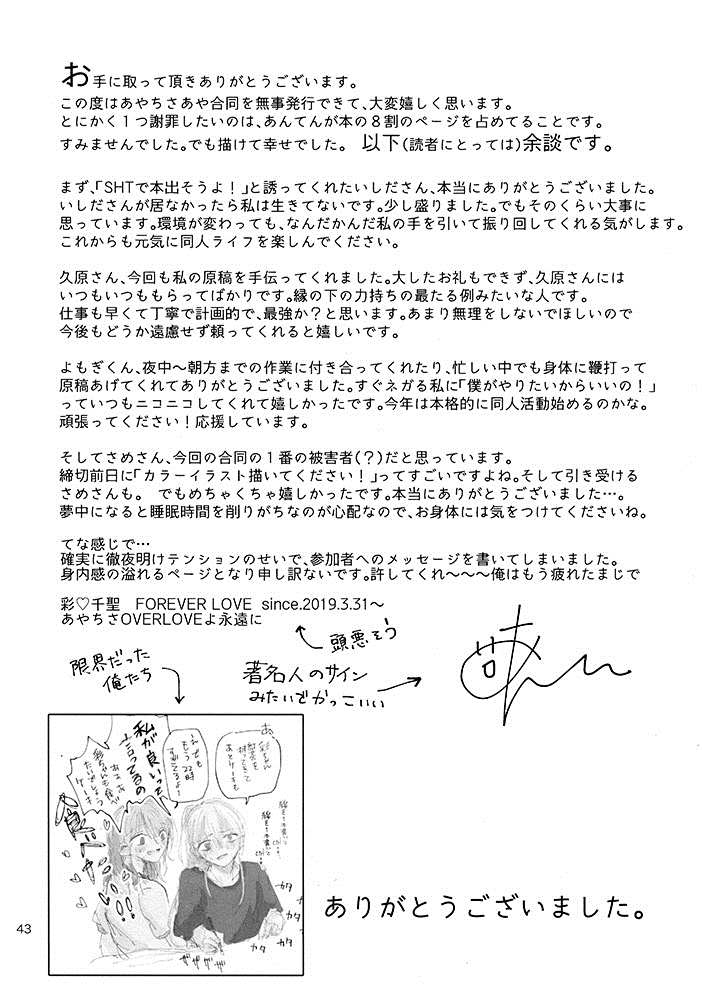 お手に取って頂きありがとうございます。
この度はあやちさあや合同を無事発行できて、大変嬉しく思います。
とにかく１つ謝罪したいのは、あんてんが本の８割のページを占めてることです。
すみませんでした。でも描けて幸せでした。 以下(読者にとっては)余談です。
まず、「SHTで本出そうよ！」と誘ってくれたいしださん、本当にありがとうございました。
いしださんが居なかったら私は生きてないです。少し盛りました。でもそのくらい大事に
思っています。環境が変わっても、なんだかんだ私の手を引いて振り回してくれる気がします。
これからも元気に同人ライフを楽しんでください。
久原さん、今回も私の原稿を手伝ってくれました。大したお礼もできず、久原さんには
いつもいつももらってばかりです。縁の下の力持ちの最たる例みたいな人です。
仕事も早くて丁寧で計画的で、最強か？と思います。あまり無理をしないでほしいので
今後もどうか遠慮せず頼ってくれると嬉しいです。
よもぎくん、夜中～朝方までの作業に付き合ってくれたり、忙しい中でも身体に鞭打って
原稿あげてくれてありがとうございました。すぐネガる私に「僕がやりたいからいいの！」
っていつもニコニコしてくれて嬉しかったです。今年は本格的に同人活動始めるのかな。
頑張ってください！応援しています。
そしてさめさん、今回の合同の１番の被害者(？)だと思っています。
締切前日に「カラーイラスト描いてください！」ってすごいですよね。そして引き受ける
さめさんも。 でもめちゃくちゃ嬉しかったです。本当にありがとうございました…。
夢中になると睡眠時間を削りがちなのが心配なので、お身体には気をつけてくださいね。
てな感じで…
確実に徹夜明けテンションのせいで、参加者へのメッセージを書いてしまいました。
身内感の溢れるページとなり申し訳ないです。許してくれ～～～俺はもう疲れたまじで
彩♡千聖 FOREVER LOVE since.2019.3.31～
あやちさOVERLOVEよ永遠に
頭悪そう
限界だった
俺たち
著名人のサイン
みたいでかっこいい
え、でも
もう22時
すぎてるよ？
私が良いって
言ってるの
カタ
カタ
カタ
ざざざざ
ありがとうございました。
43